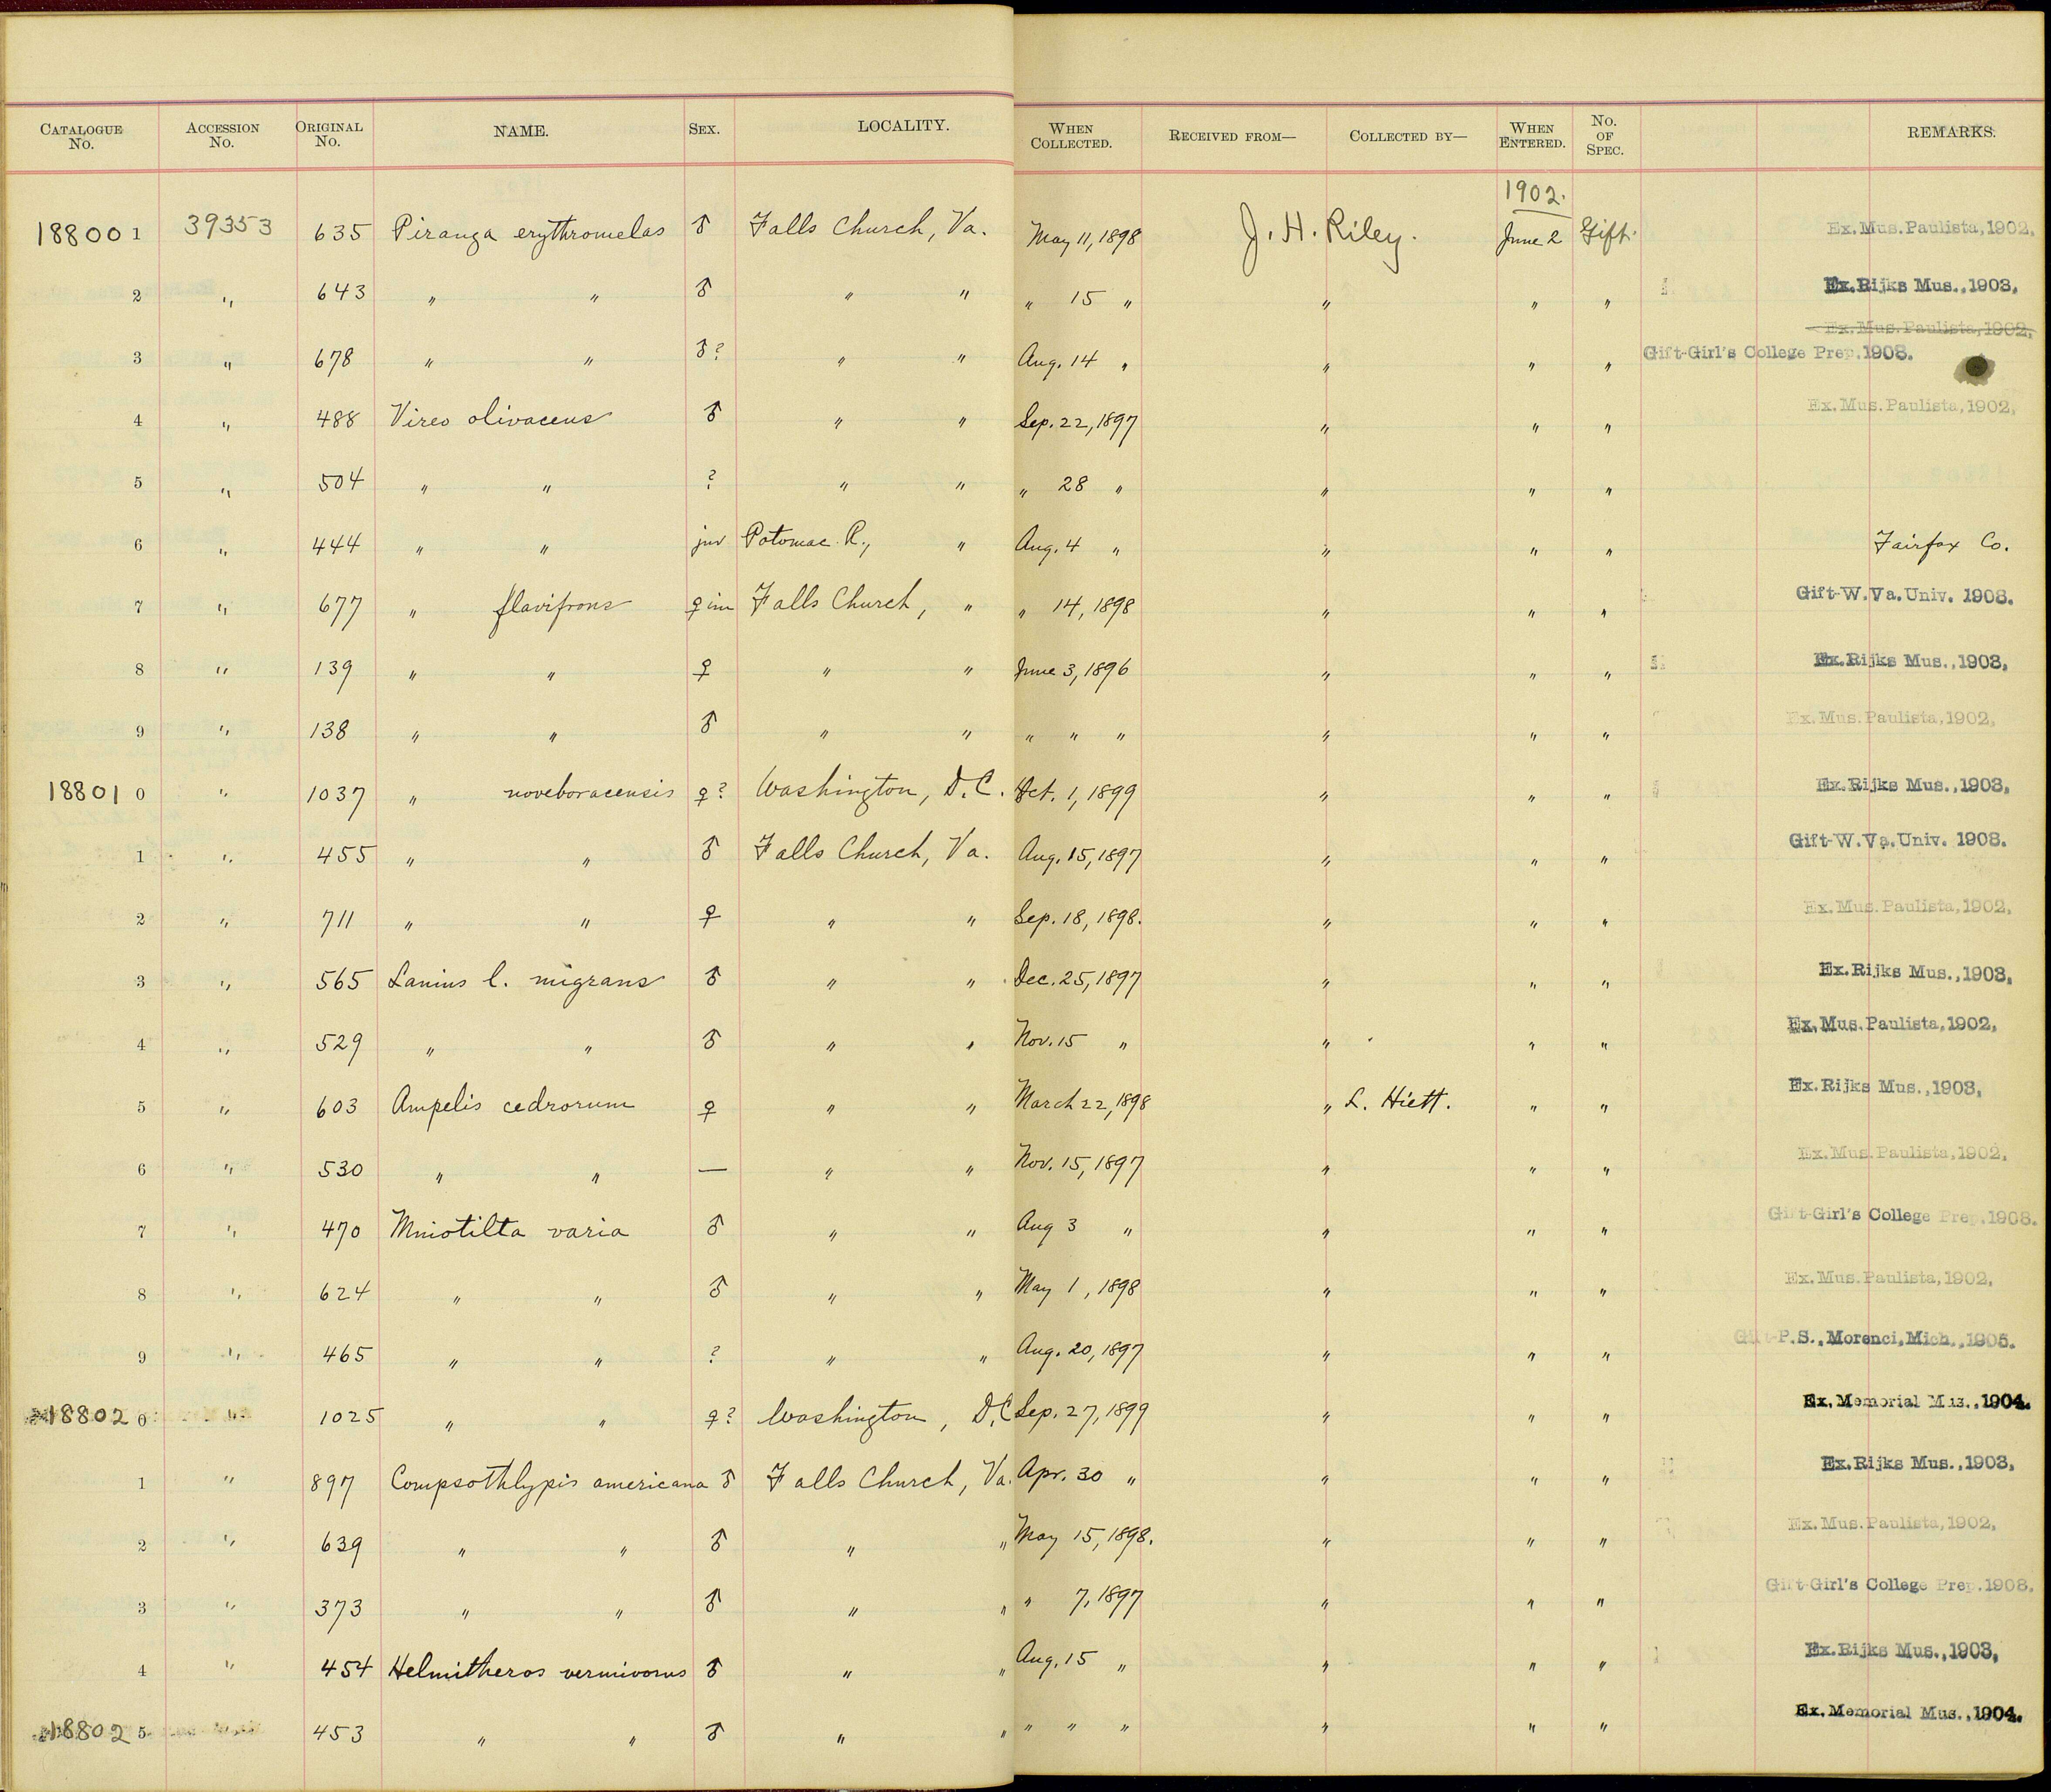 CATALOGUE No. ACCESSION No. ORIGINAL No. NAME. SEX. LOCALITY. WHEN COLLECTED. RECEIVED FROM— COLLECTED BY— WHEN ENTERED. No. OF SPEC. REMARKS.
1902.
188001 39353 635 Piranga erythromelas ♂ Falls Church, Va. May 11, 1898 J. H. Riley. June 2 Gift. Ex. Mus. Paulista, 1902,
2 " 643 " " ♂ " " " 15 " " " " Ex. Rijks Mus., 1903,
Ex. Mus. Paulista, 1902,
3 " 678 " " ♂? " " Aug. 14 " " " " Gift-Girl's College Prep. 1908.
4 " 488 Vireo olivaceus ♂ " " Sep. 22, 1897 " " " Ex. Mus. Paulista, 1902,
5 " 504 " " ? " " " 28 " " " "
6 " 444 " " juv Potomac R., " Aug. 4 " " " " Fairfax Co.
7 " 677 " flavifrons ♀ im Falls Church, " " 14, 1898 " " " Gift-W. Va. Univ. 1908.
8 " 139 " " ♀ " " June 3, 1896 " " " Ex. Rijks Mus., 1903,
9 " 138 " " ♂ " " " " " " " " Ex. Mus. Paulista, 1902,
188010 " 1037 " noveboracensis ♀? Washington, D. C. Oct. 1, 1899 " " " Ex. Rijks Mus., 1903,
1 " 455 " " ♂ Falls Church, Va. Aug. 15, 1897 " " " Gift-W. Va. Univ. 1908.
2 " 711 " " ♀ " " Sep. 18, 1898. " " " Ex. Mus. Paulista, 1902,
3 " 565 Lanius l. migrans ♂ " " Dec. 25, 1897 " " " Ex. Rijks Mus., 1903,
4 " 529 " " ♂ " " Nov. 15 " " " " Ex. Mus. Paulista, 1902,
5 " 603 Ampelis cedrorum ♀ " " March 22, 1898 " L. Hiett. " " Ex. Rijks Mus., 1903,
6 " 530 " " — " " Nov. 15, 1897 " " " Ex. Mus. Paulista, 1902,
7 " 470 Mniotilta varia ♂ " " Aug 3 " " " " Gift-Girl's College Prep. 1908.
8 " 624 " " ♂ " " May 1, 1898 " " " Ex. Mus. Paulista, 1902,
9 " 465 " " ? " " Aug. 20, 1897 " " " Gift-P. S., Morenci, Mich., 1905.
188020 " 1025 " " ♀? Washington, D. C. Sep. 27, 1899 " " " Ex. Memorial Mus., 1904.
1 " 897 Compsothlypis americana ♂ Falls Church, Va. Apr. 30 " " " " Ex. Rijks Mus., 1903,
2 " 639 " " ♂ " " May 15, 1898. " " " Ex. Mus. Paulista, 1902,
3 " 373 " " ♂ " " " 7, 1897 " " " Gift-Girl's College Prep. 1908.
4 " 454 Helmitheros vermivorus ♂ " " Aug. 15 " " " " Ex. Rijks Mus., 1903,
188025 453 " " ♂ " " " " " " " " Ex. Memorial Mus., 1904.